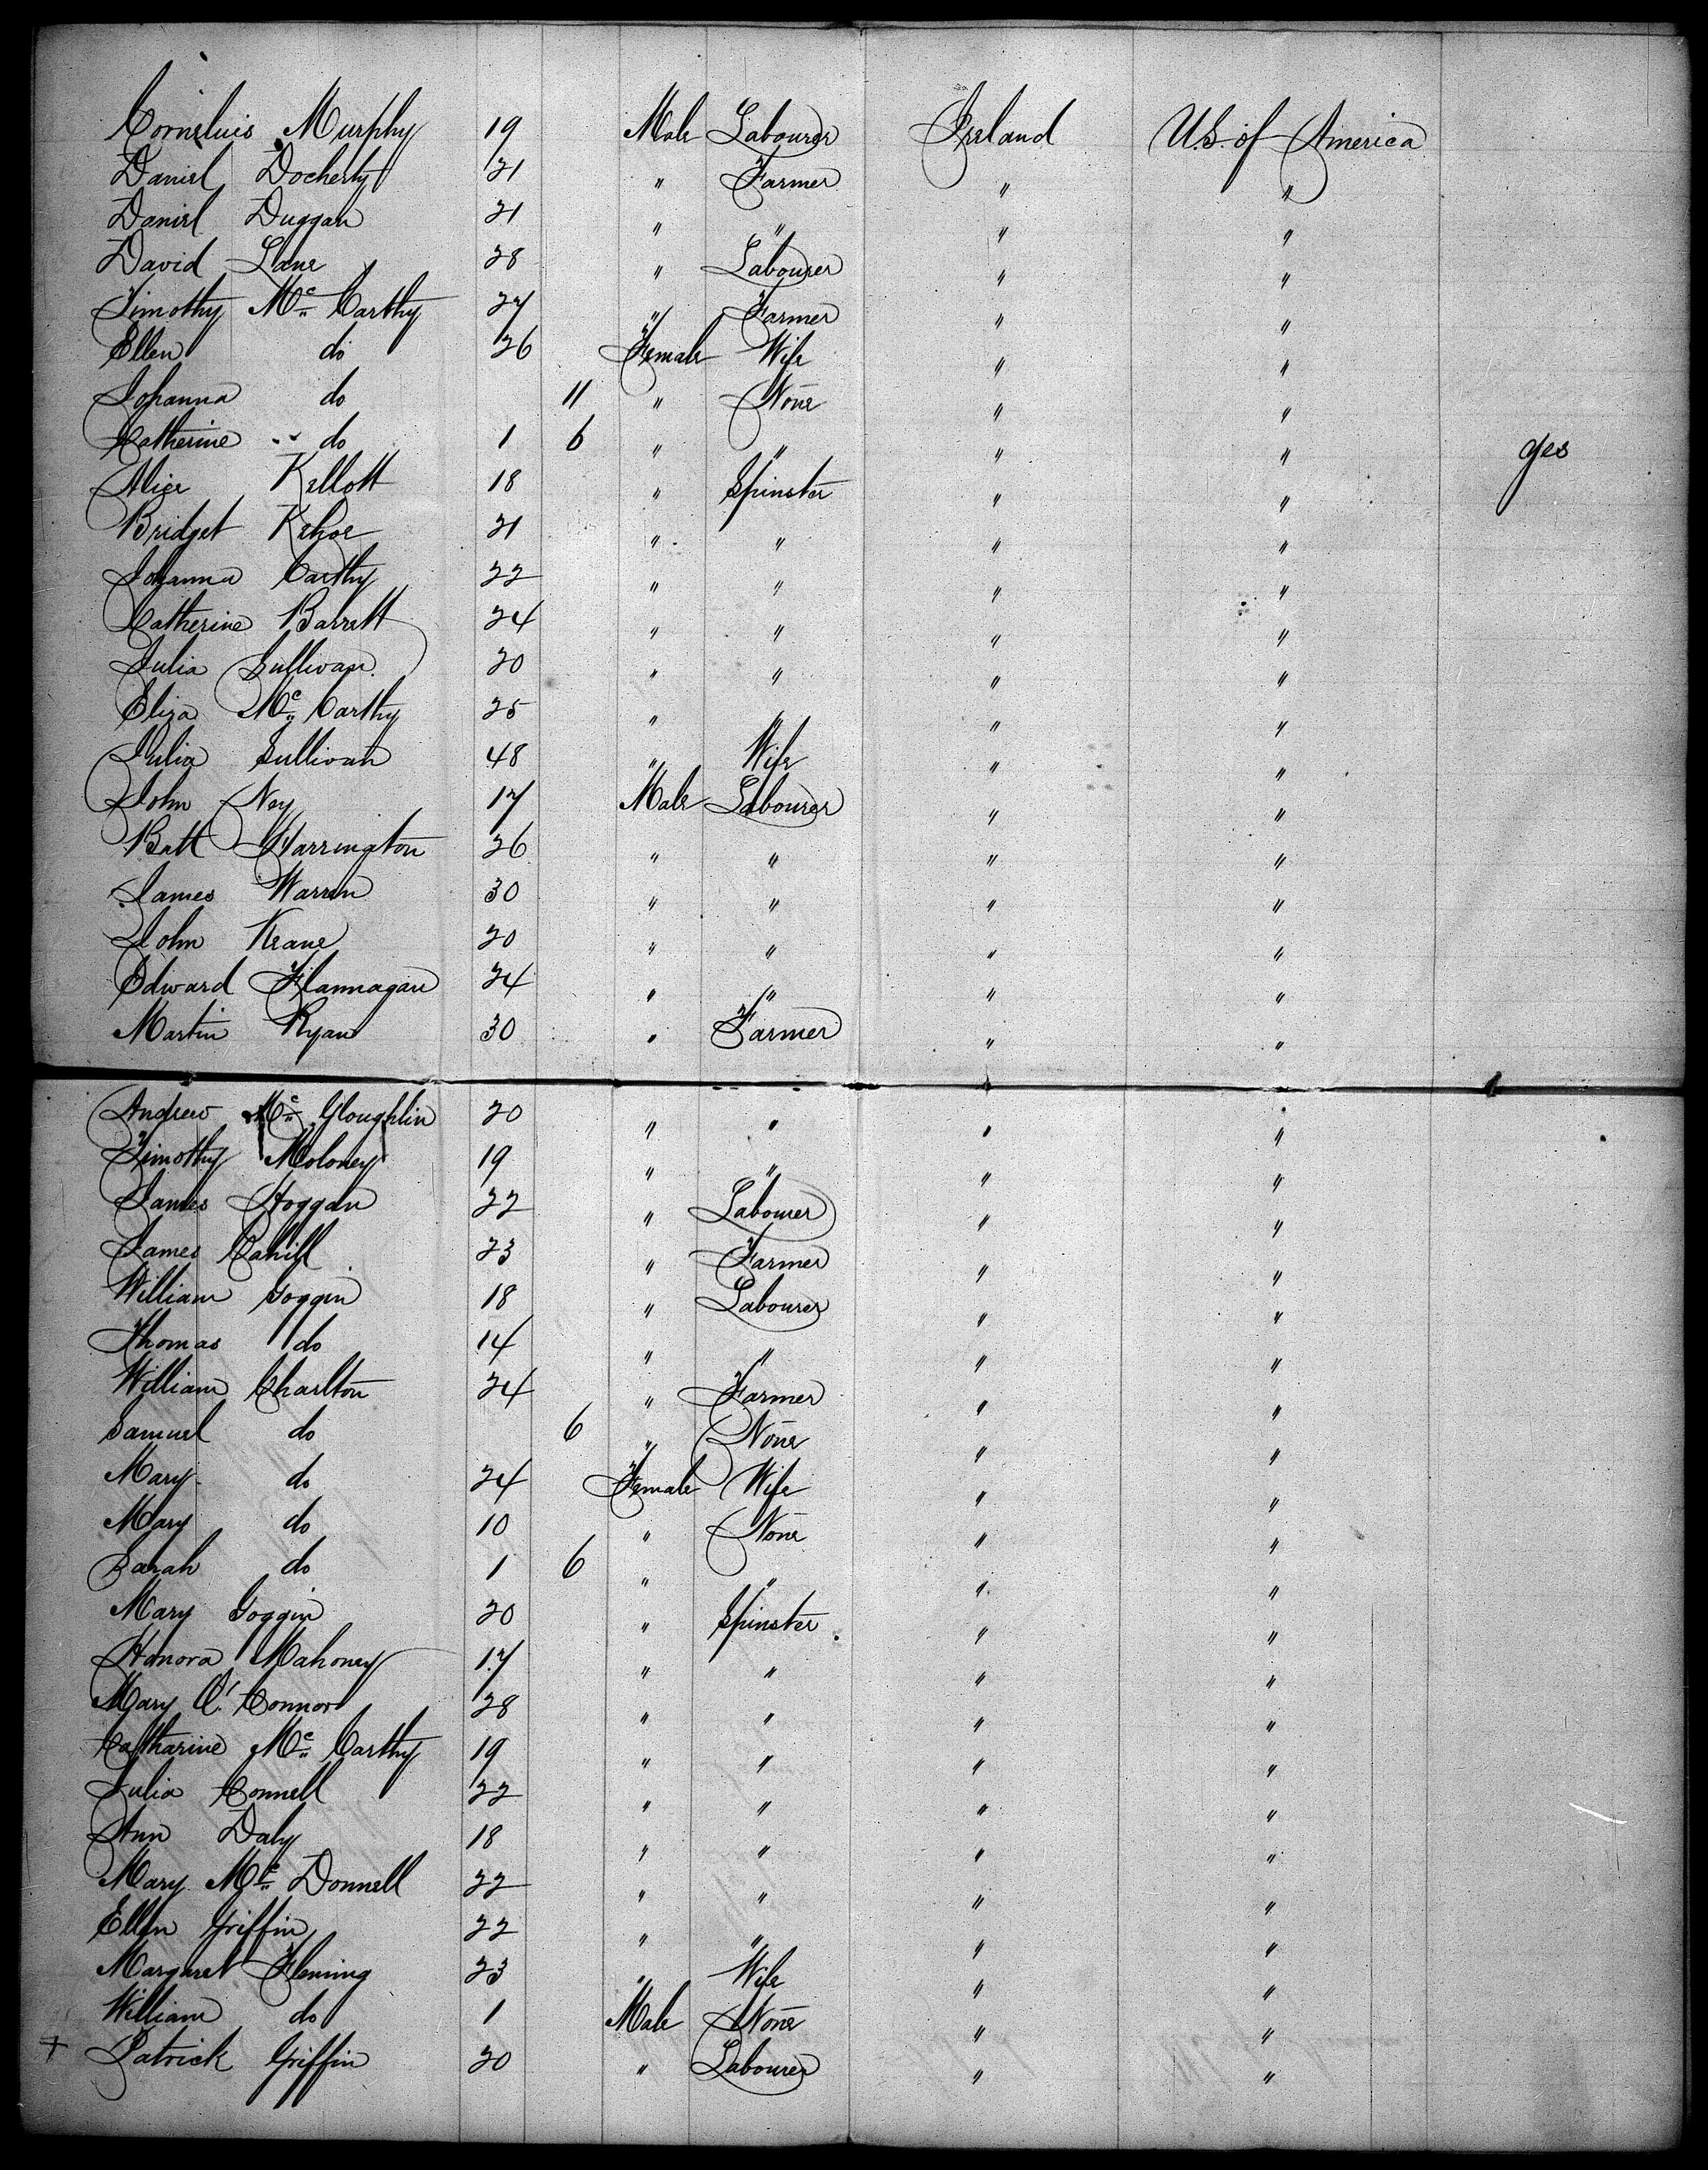 Corneluis Murphy 19 Male Labourer Ireland U.S. of America
Daniel Docherty 21 " Farmer " "
Daniel Duggan 21 " " " "
David Lane 28 " Labourer " "
Timothy Mc Carthy 27 " Farmer " "
Ellen do 26 Female Wife " "
Johanna do 11 " None " "
Catherine do 1 6 " " " " yes
Alice Kellott 18 " Spinster " "
Bridget Kehoe 21 " " " "
Johanna Carthy 22 " " " "
Catherine Barrett 24 " " " "
Julia Sullivan 20 " " " "
Eliza Mc Carthy 25 " " " "
Julia Sullivan 48 " Wife " "
John Ney 17 Male Labourer " "
Batt Harrington 26 " " " "
James Warren 30 " " " "
John Keane 20 " " " "
Edward Flannagan 24 " " " "
Martin Ryan 30 " Farmer " "
Andrew Mc Gloughlin 20 " " " "
Timothy Moloney 19 " " " "
James Hoggan 22 " Labourer " "
James Cahill 23 " Farmer " "
William Goggin 18 " Labourer " "
Thomas do 14 " " " "
William Charlton 24 " Farmer " "
Samuel do 6 " None " "
Mary do 24 Female Wife " "
Mary do 10 " None " "
Sarah do 1 6 " " " "
Mary Goggin 20 " Spinster " "
Hanora Mahoney 17 " " " "
Mary O'Connor 28 " " " "
Catharine Mc Carthy 19 " " " "
Julia Connell 22 " " " "
Ann Daly 18 " " " "
Mary Mc Donnell 22 " " " "
Ellen Griffin 22 " " " "
Margaret Fleming 23 " Wife " "
William do 1 Male None " "
+ Patrick Griffin 20 " Labourer " "